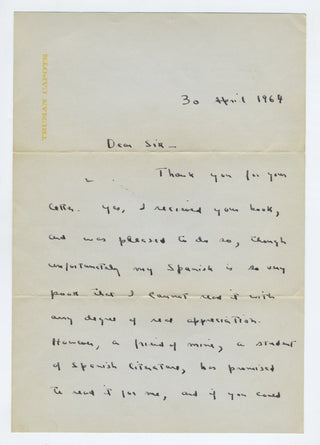 TRUMAN CAPOTE
30 April 1964
Dear Sir—
Thank you for your
letter. Yes, I received your book,
and was pleased to do so, though
unfortunately my Spanish is so very
poor that I cannot read it with
any degree of real appreciation.
However, a friend of mine, a student
of Spanish literature, has promised
to read it for me, and if you could